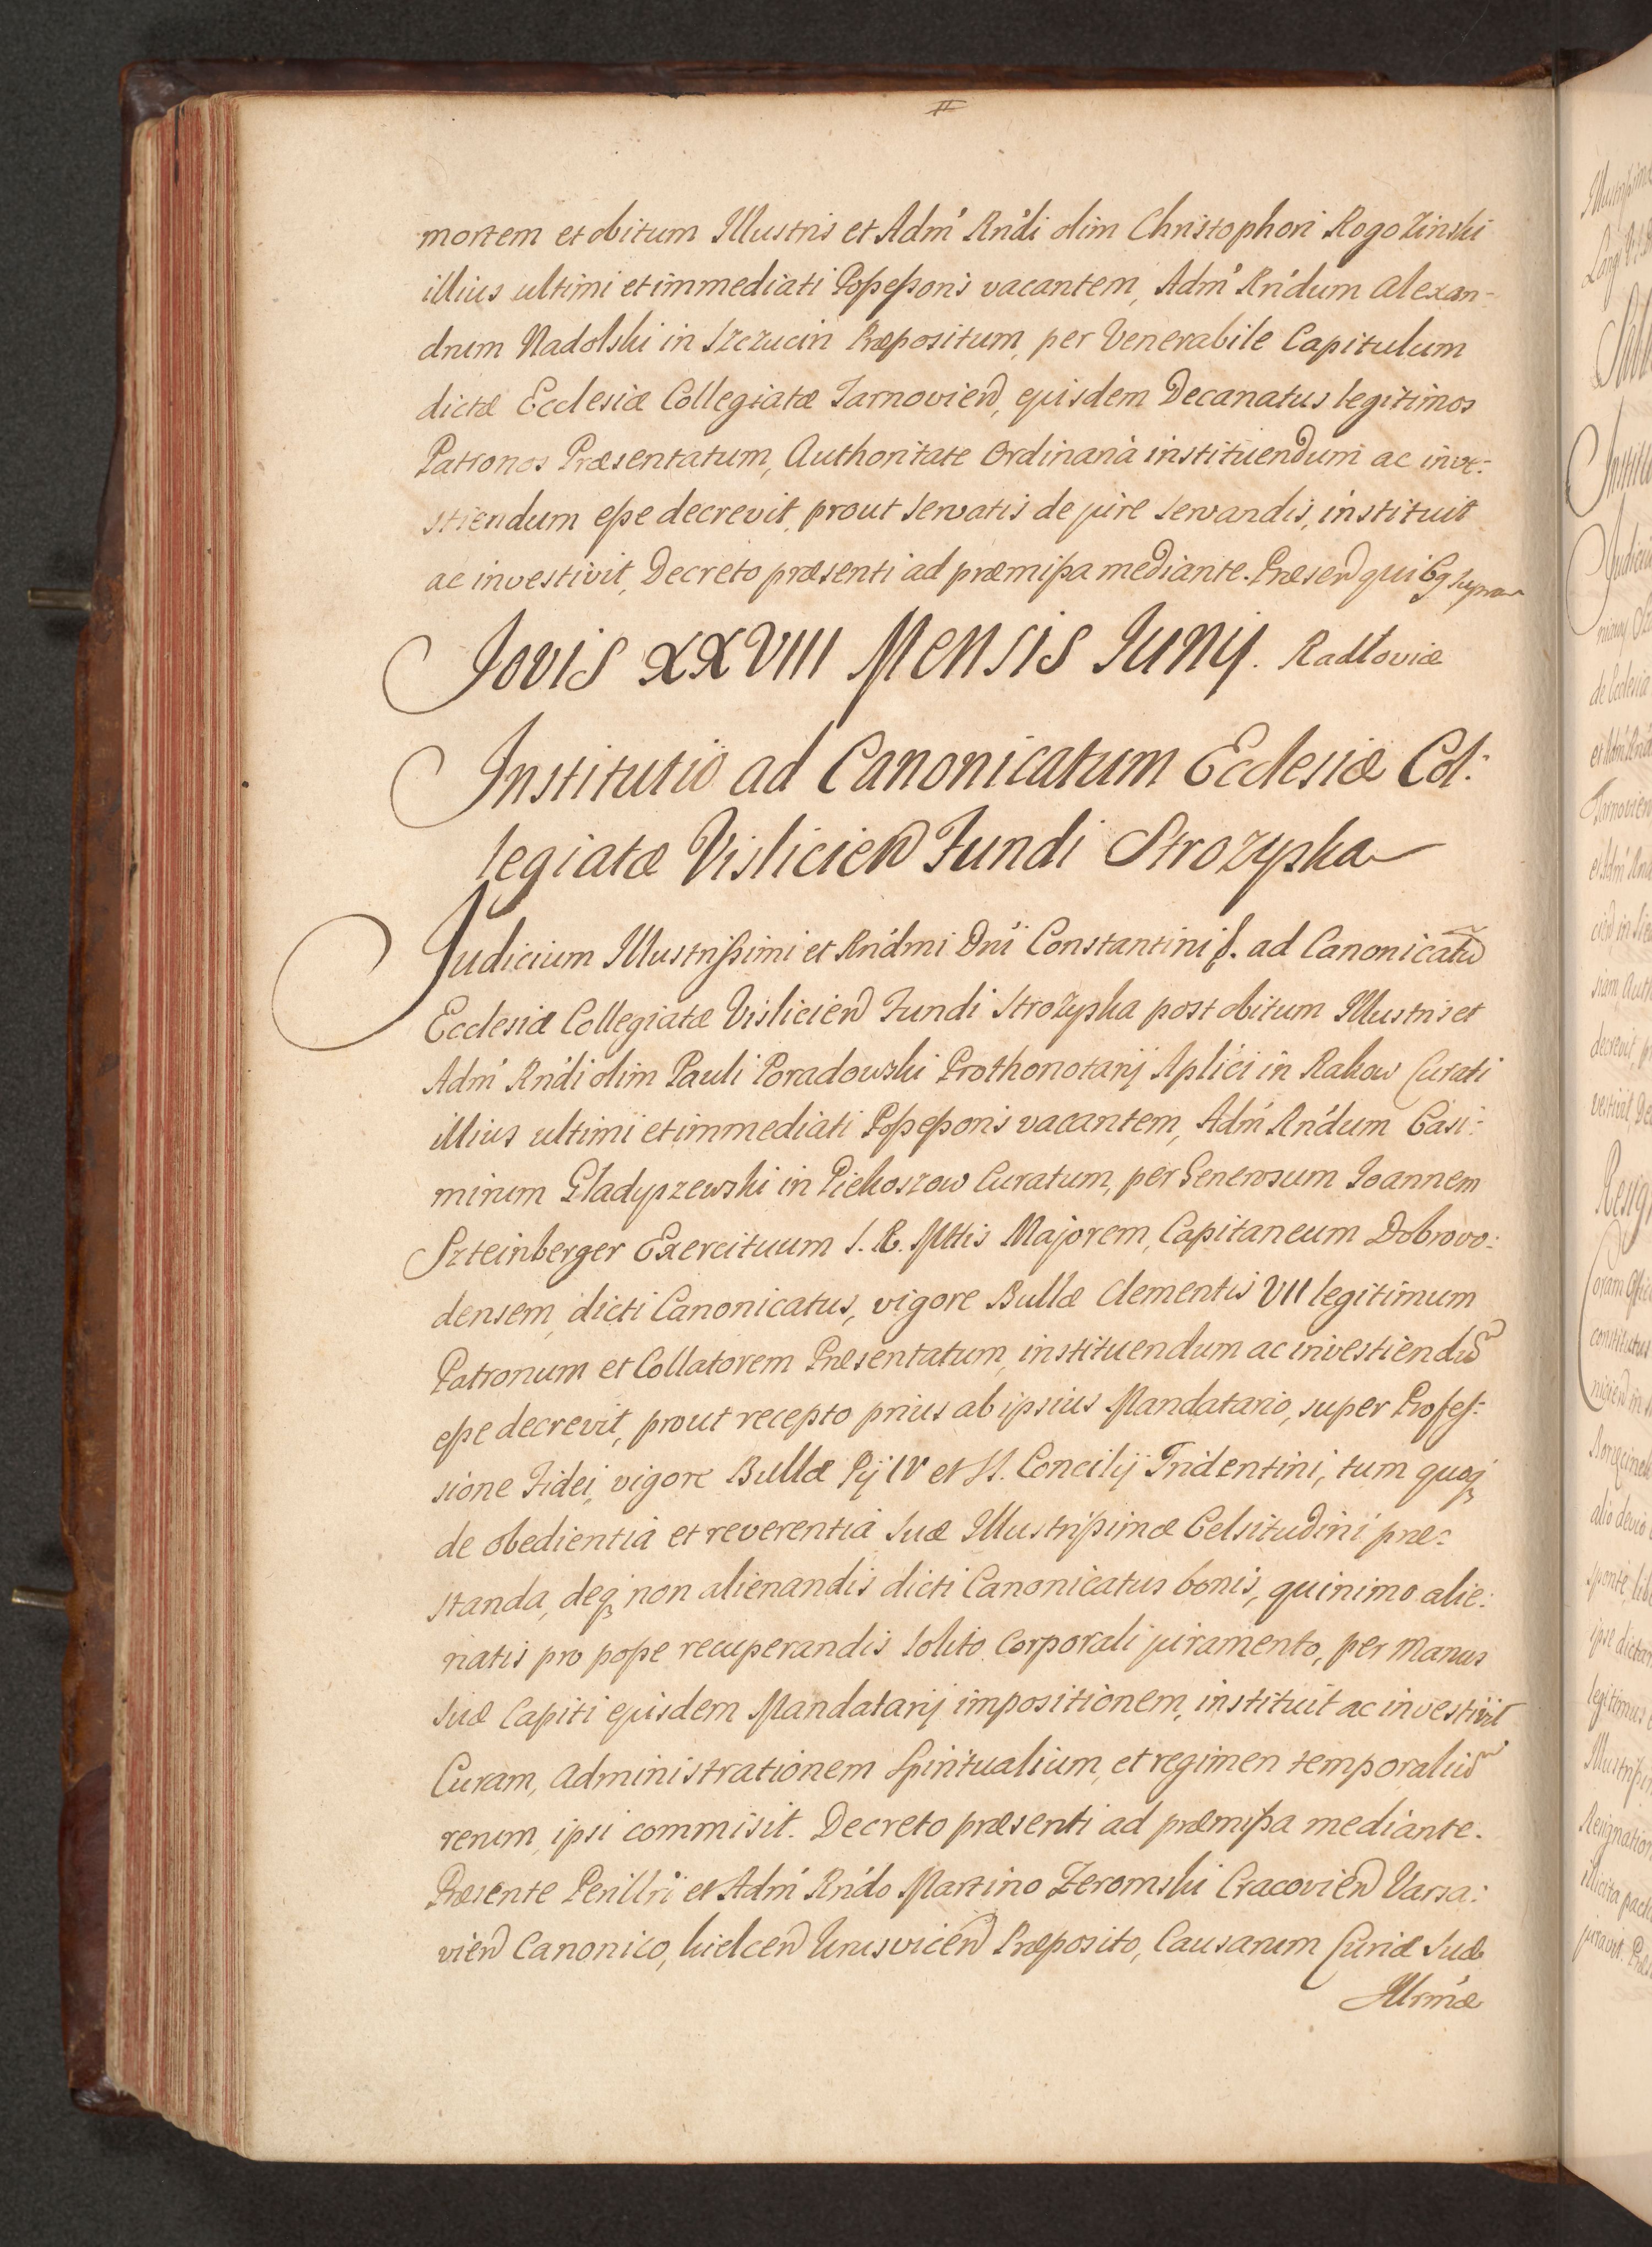 mortem et obitum Illustris et Adm' Rn'di olim Christophori Rogozinski
illius ultimi et immediati Possessoris vacantem, Adm' Rn'dum Alexan-
drum Nadolski in Szczucin Præpositum, per Venerabile Capitulum
dictæ Ecclesiæ Collegiatæ Tarnovien, ejusdem Decanatus legitimos
Patronos Præsentatum, Authoritate Ordinariâ instituendum ac inve:
stiendum esse decrevit, prout servatis de jure servandis, instituit
ac investivit, Decreto præsenti ad præmissa mediante. Præsen qui supra
Jovis XXVIII Mensis Junij. Radłoviæ
Institutio ad Canonicatum Ecclesiæ Col:
legiatæ Vislicien Fundi Strozyska
Judicium Illustrissimi et Rn'dmi Dn'i Constantini S. ad Canonicatũ
Ecclesiæ Collegiatæ Vislicien Fundi Strozyska post obitum Illustris et
Adm' Rn'di olim Pauli Poradowski Prothonotarij Aplici in Rakow Curati
illius ultimi et immediati Possessoris vacantem, Adm' Rn'dum Casi:
mirum Gladyszewski in Piekoszow Curatum, per Generosum Joannem
Szteinberger Exercituum S. R. Mttis Majorem, Capitaneum Dobrovo:
densem, dicti Canonicatus, vigore Bullæ Clementis VII legitimum
Patronum et Collatorem Præsentatum, instituendum ac investiendũ
esse decrevit, prout recepto prius ab ipsius Mandatario, super Profes:
sione Fidei, vigore Bullæ Pij IV et SS. Concilij Tridentini, tum quoq3
de obedientiâ et reverentiâ Suæ Illustrissimæ Celsitudini præ:
standa, deq3 non alienandis dicti Canonicatus bonis, quinimo alie:
natis pro posse recuperandis solito corporali juramento, per Manus
suæ Capiti ejusdem Mandatarij impositionem, instituit ac investivit
Curam, Administrationem Spiritualium, et regimen temporaliũ
rerum ipsi commisit. Decreto præsenti ad præmissa mediante.
Præsente Perillri et Adm' Rn'do Martino Zeromski Cracovien Varsa:
vien Canonico, Kielcen Præposito, Causarum Curiæ Suæ
Illrmæ